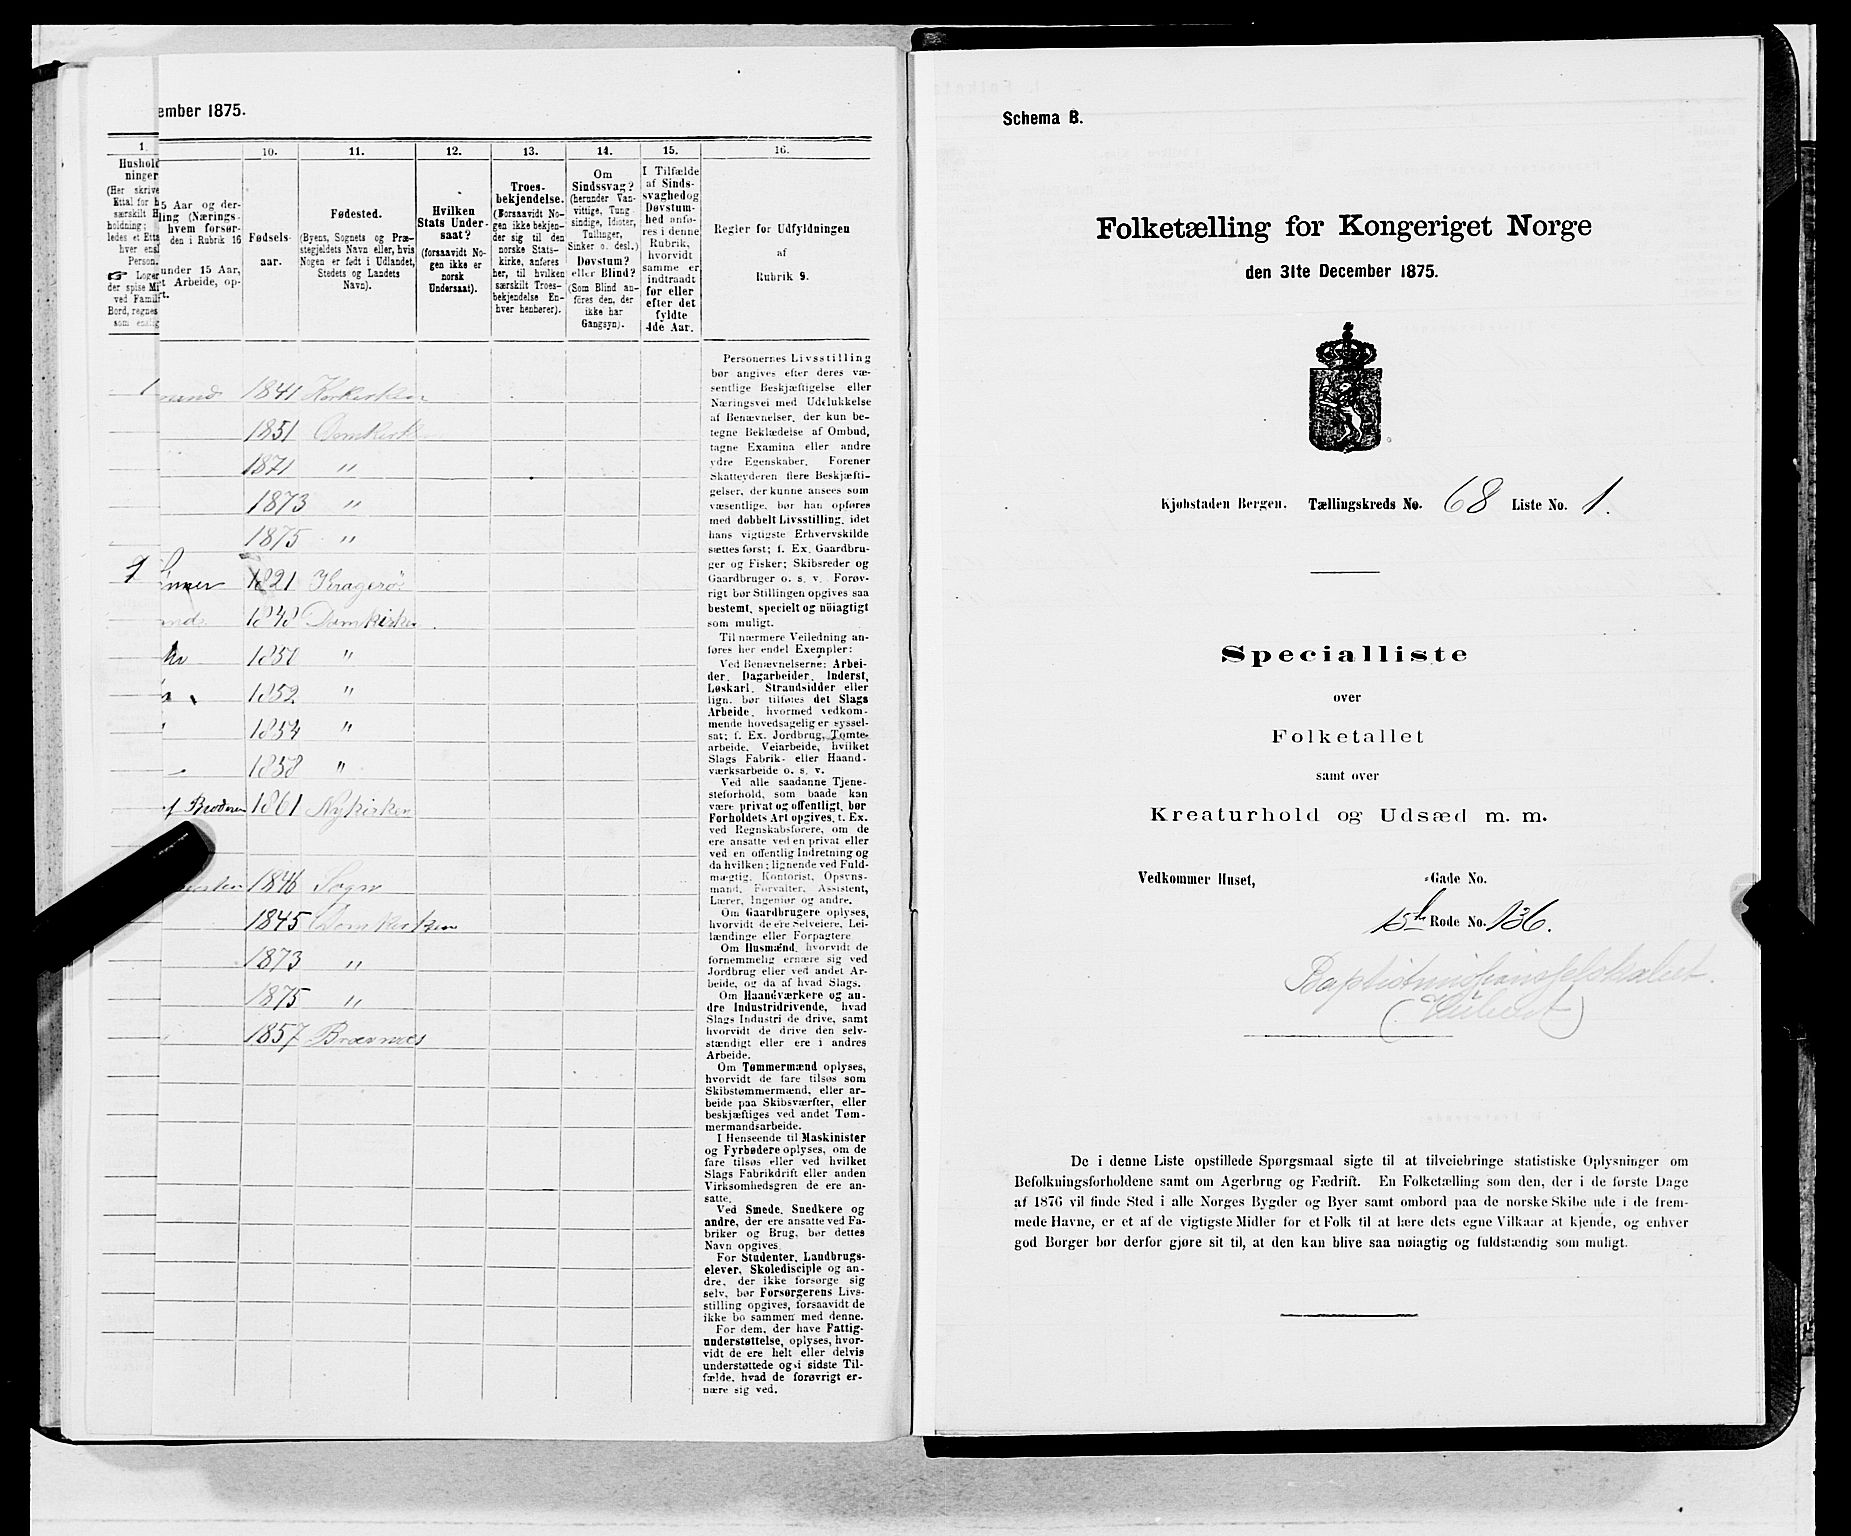 ember 1875.
1.
Hushold
ninger
(Her skrive
Ettal for h
særskilt H
holdning;
ledes et Etta
hver ensl
Person.
☞ Loger
der spise Mi
ved Famili
Bord, regnes
som enslig
5 Aar og der-
ling (Nærings-
hvem forsør-
den i Rubrik 16
under 15 Aar,
t Arbeide, op-
rt.
10.
Fødsels-
aar.
11.
Fødested.
(Byens, Sognets og Præ-
stegjeldets Navn eller, hvis
Nogen er født i Udlandet,
Stedets og Landets
Navn).
12.
Hvilken
Stats Under-
saat?
(forsaavidt No-
gen ikke er
norsk
Undersaat).
13.
Troes-
bekjendelse.
(Forsaavidt No-
gen ikke bekjen-
der sig til den
norske Stats-
kirke, anføres
her, til hvilken
særskilt Troes-
bekjendelse En-
hver henhører).
14.
Om
Sindssvag?
(herunder Van-
vittige, Tung-
sindige, Idioter,
Tullinger,
Sinker o. desl.)
Døvstum?
eller Blind?
(Som Blind an-
føres den, der
ikke har
Gangsyn).
15.
I Tilfælde
af Sinds-
svaghedog
Døvstum-
hed anfø-
res i denne
Rubrik,
hvorvidt
samme er
indtraadt
før eller
efter det
fyldte
4de Aar.
16.
Regler for Udfyldningen
af
Rubrik 9.
1 mand 1841 Korkirken
1851 Domkirk
1871 "
1873 "
1875 "
1 1821 Kragerø
1848 Domkirken
1850 "
1852 "
1854 "
1858 "
af Broderen 1861 Nykirken
1846 Sogn
1845 Domkirken
1873 "
1875 "
1857
Personernes Livsstilling
bør angives efter deres væ-
sentlige Beskjæftigelse eller
Næringsvei med Udelukkelse
af Benævnelser, der kun be-
tegne Beklædelse af Ombud,
tagne Examina eller andre
ydre Egenskaber. Forener
Skatteyderen flere Beskjæfti-
gelser, der kunne ansees som
væsentlige, bør han opføres
med dobbelt Livsstilling, idet
hans vigtigste Erhvervskilde
sættes først; f. Ex. Gaardbru-
ger og Fisker; Skibsreder og
Gaardbruger o. s. v. Forøv-
rigt bør Stillingen opgives saa
bestemt, specielt og nøiagtigt
som muligt.
Til nærmere Veiledning an-
føres her endel Exempler:
Ved Benævnelserne: Arbei-
der, Dagarbeider, Inderst,
Løskarl, Strandsidder eller
lign. bør tilføies det Slags
Arbeide, hvormed vedkom-
mende hovedsagelig er syssel-
sat; f. Ex. Jordbrug, Tomte-
arbeide, Veiarbeide, hvilket
Slags Fabrik- eller Haand-
værksarbeide o. s. v.
Ved alle saadanne Tjene-
steforhold, som baade kan
være privat og offentligt, bør
Forholdets Art opgives, t. Ex.
ved Regnskabsførere, om de
ere ansatte ved en privat eller
ved en offentlig Indretning og
da hvilken; lignende ved Fuld-
mægtig, Kontorist, Opsyns-
mand, Forvalter, Assistent,
Lærer, Ingeniør og andre.
Om Gaardbrugere oplyses,
hvorvidt de ere Selveiere, Lei-
lændinge eller Forpagtere
Om Husmænd, hvorvidt de
fornemmelig ernære sig ved
Jordbrug eller ved andet Ar-
beide, og da af hvad Slags.
Om Haandværkere og an-
dre Industridrivende, hvad
Slags Industri de drive, samt
hvorvidt de drive den selv-
stændigt eller ere i andres
Arbeide.
Om Tømmermænd oplyses,
hvorvidt de fare tilsøs som
Skibstømmermænd, eller ar-
beide paa Skibsværfter, eller
beskjæftiges ved andet Tøm-
mermandsarbeide.
I Henseende til Maskinister
og Fyrbødere oplyses, om de
fare tilsøs eller ved hvilket
Slags Fabrikdrift eller anden
Virksomhedsgren de ere an-
satte.
Ved Smede, Snedkere og
andre, der ere ansatte ved Fa-
briker og Brug, bør dettes
Navn opgives.
For Studenter, Landbrugs-
elever, Skoledisciple og an-
dre, der ikke forsørge sig
selv, bør Forsørgerens Livs-
stilling opgives, forsaavidt de
ikke bo sammen med denne.
For dem, der have Fattig-
understøttelse, oplyses, hvor-
vidt de ere helt eller delvis
understøttede og i sidste Til-
fælde, hvad de forøvrigt er-
nære sig ved.
Schema B.
Folketælling for Kongeriget Norge
den 31te December 1875.
Kjøbstaden Bergen. Tællingskreds No. 68 Liste No. 1.
Specialliste
over
Folketallet
samt over
Kreaturhold og Udsæd m. m.
Vedkommer Huset, -Gade No.
15de Rode No. 136.
De i denne Liste opstillede Spørgsmaal sigte til at tilveiebringe statistiske Oplysninger om
Befolkningsforholdene samt om Agerbrug og Fædrift. En Folketælling som den, der i de første Dage
af 1876 vil finde Sted i alle Norges Bygder og Byer samt ombord paa de norske Skibe ude i de frem-
mede Havne, er et af de vigtigste Midler for et Folk til at lære dets egne Vilkaar at kjende, og enhver
god Borger bør derfor gjøre sit til, at den kan blive saa nøiagtig og fuldstændig som muligt.